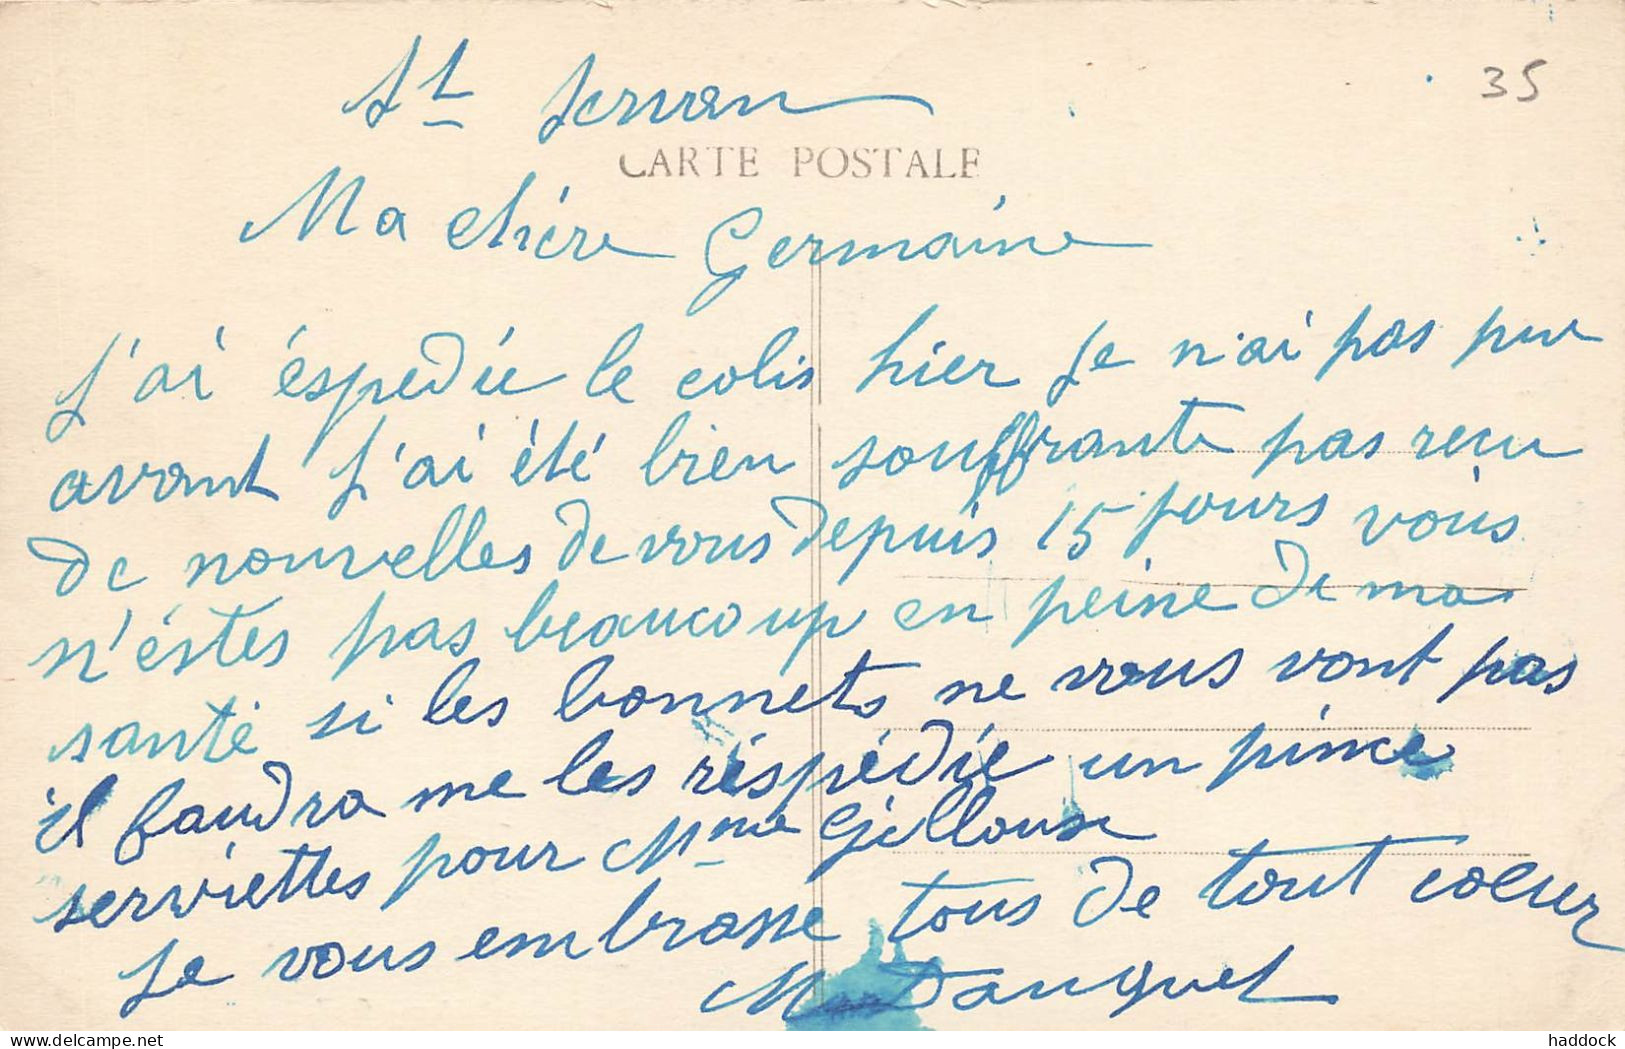 St Servan
35
CARTE POSTALE
Ma chére Germaine
J'ai éspedié le colis hier Je n'ai pas pu
avant J'ai été bien souffrante pas reçu
de nouvelles de vous depuis 15 jours vous
n'éstes pas beaucoup en peine de ma
santé si les bonnets ne vous vont pas
il faudra me les réspédié un pince
serviettes pour Mme
Je vous embrasse tous de tout coeur
Danguel
delcampe.net
haddock